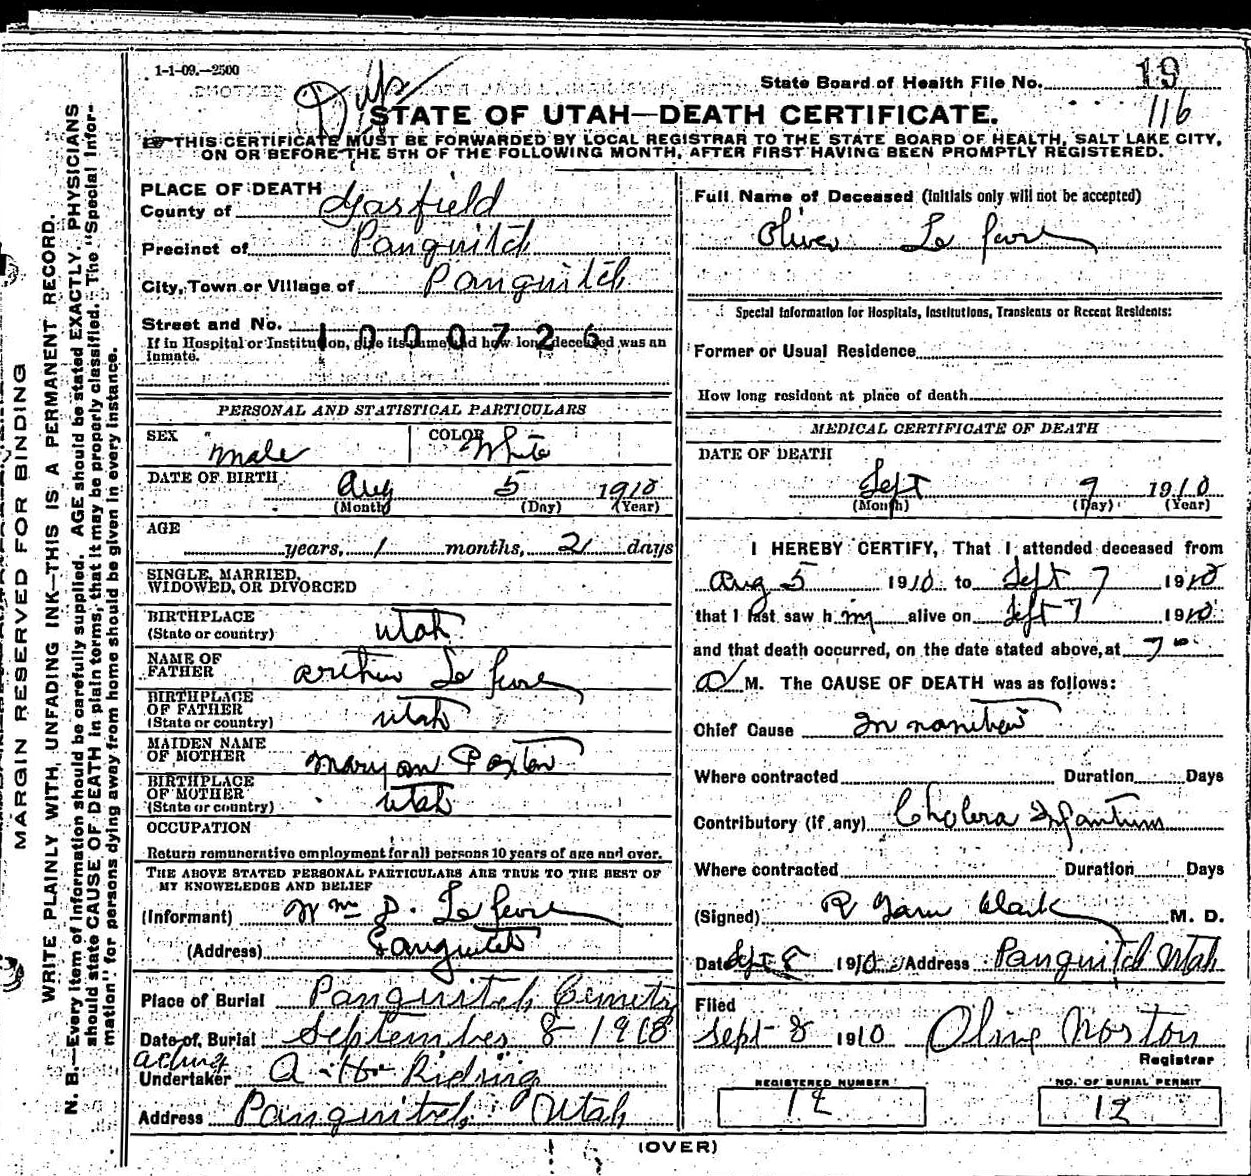 1-1-09.—2500
State Board of Health File No. 19
116
Dup
STATE OF UTAH—DEATH CERTIFICATE.
THIS CERTIFICATE MUST BE FORWARDED BY LOCAL REGISTRAR TO THE STATE BOARD OF HEALTH, SALT LAKE CITY,
ON OR BEFORE THE 5TH OF THE FOLLOWING MONTH, AFTER FIRST HAVING BEEN PROMPTLY REGISTERED.
MARGIN RESERVED FOR BINDING
WRITE PLAINLY WITH UNFADING INK—THIS IS A PERMANENT RECORD.
N. B.—Every item of information should be carefully supplied. AGE should be stated EXACTLY. PHYSICIANS
should state CAUSE OF DEATH in plain terms, that it may be properly classified. The "Special Infor-
mation" for persons dying away from home should be given in every instance.
PLACE OF DEATH
County of Garfield
Precinct of Panguitch
City, Town or Village of Panguitch
Street and No.
1000726
If in Hospital or Institution, give its name and how long deceased was an
inmate.
PERSONAL AND STATISTICAL PARTICULARS
SEX Male COLOR White
DATE OF BIRTH Aug 5 1910
(Month) (Day) (Year)
AGE
years, 1 months, 2 days
SINGLE, MARRIED,
WIDOWED, OR DIVORCED
BIRTHPLACE
(State or country) Utah
NAME OF
FATHER Arthur Le Fevre
BIRTHPLACE
OF FATHER
(State or country) Utah
MAIDEN NAME
OF MOTHER Maryann Paxton
BIRTHPLACE
OF MOTHER
(State or country) Utah
OCCUPATION
Return remunerative employment for all persons 10 years of age and over.
THE ABOVE STATED PERSONAL PARTICULARS ARE TRUE TO THE BEST OF
MY KNOWLEDGE AND BELIEF
(Informant) Wm D. Le Fevre
(Address) Panguitch
Place of Burial Panguitch Cemetry
Date of Burial September 8 1910
acting
Undertaker Riding
Address Panguitch Utah
Full Name of Deceased (Initials only will not be accepted)
Oliver Le Fevre
Special Information for Hospitals, Institutions, Transients or Recent Residents:
Former or Usual Residence
How long resident at place of death
MEDICAL CERTIFICATE OF DEATH
DATE OF DEATH
Sept 7 1910
(Month) (Day) (Year)
I HEREBY CERTIFY, That I attended deceased from
Aug 5 1910 to Sept 7 1910
that I last saw him alive on Sept 7 1910
and that death occurred, on the date stated above, at 7
a M. The CAUSE OF DEATH was as follows:
Chief Cause Innanition
Where contracted Duration Days
Contributory (if any) Cholera Infantum
Where contracted Duration Days
(Signed) R Garn Clark M. D.
Date Sept 8 1910 Address Panguitch Utah
Filed
Sept 8 1910 Olive Norton
Registrar
REGISTERED NUMBER
12
NO. OF BURIAL PERMIT
12
(OVER)